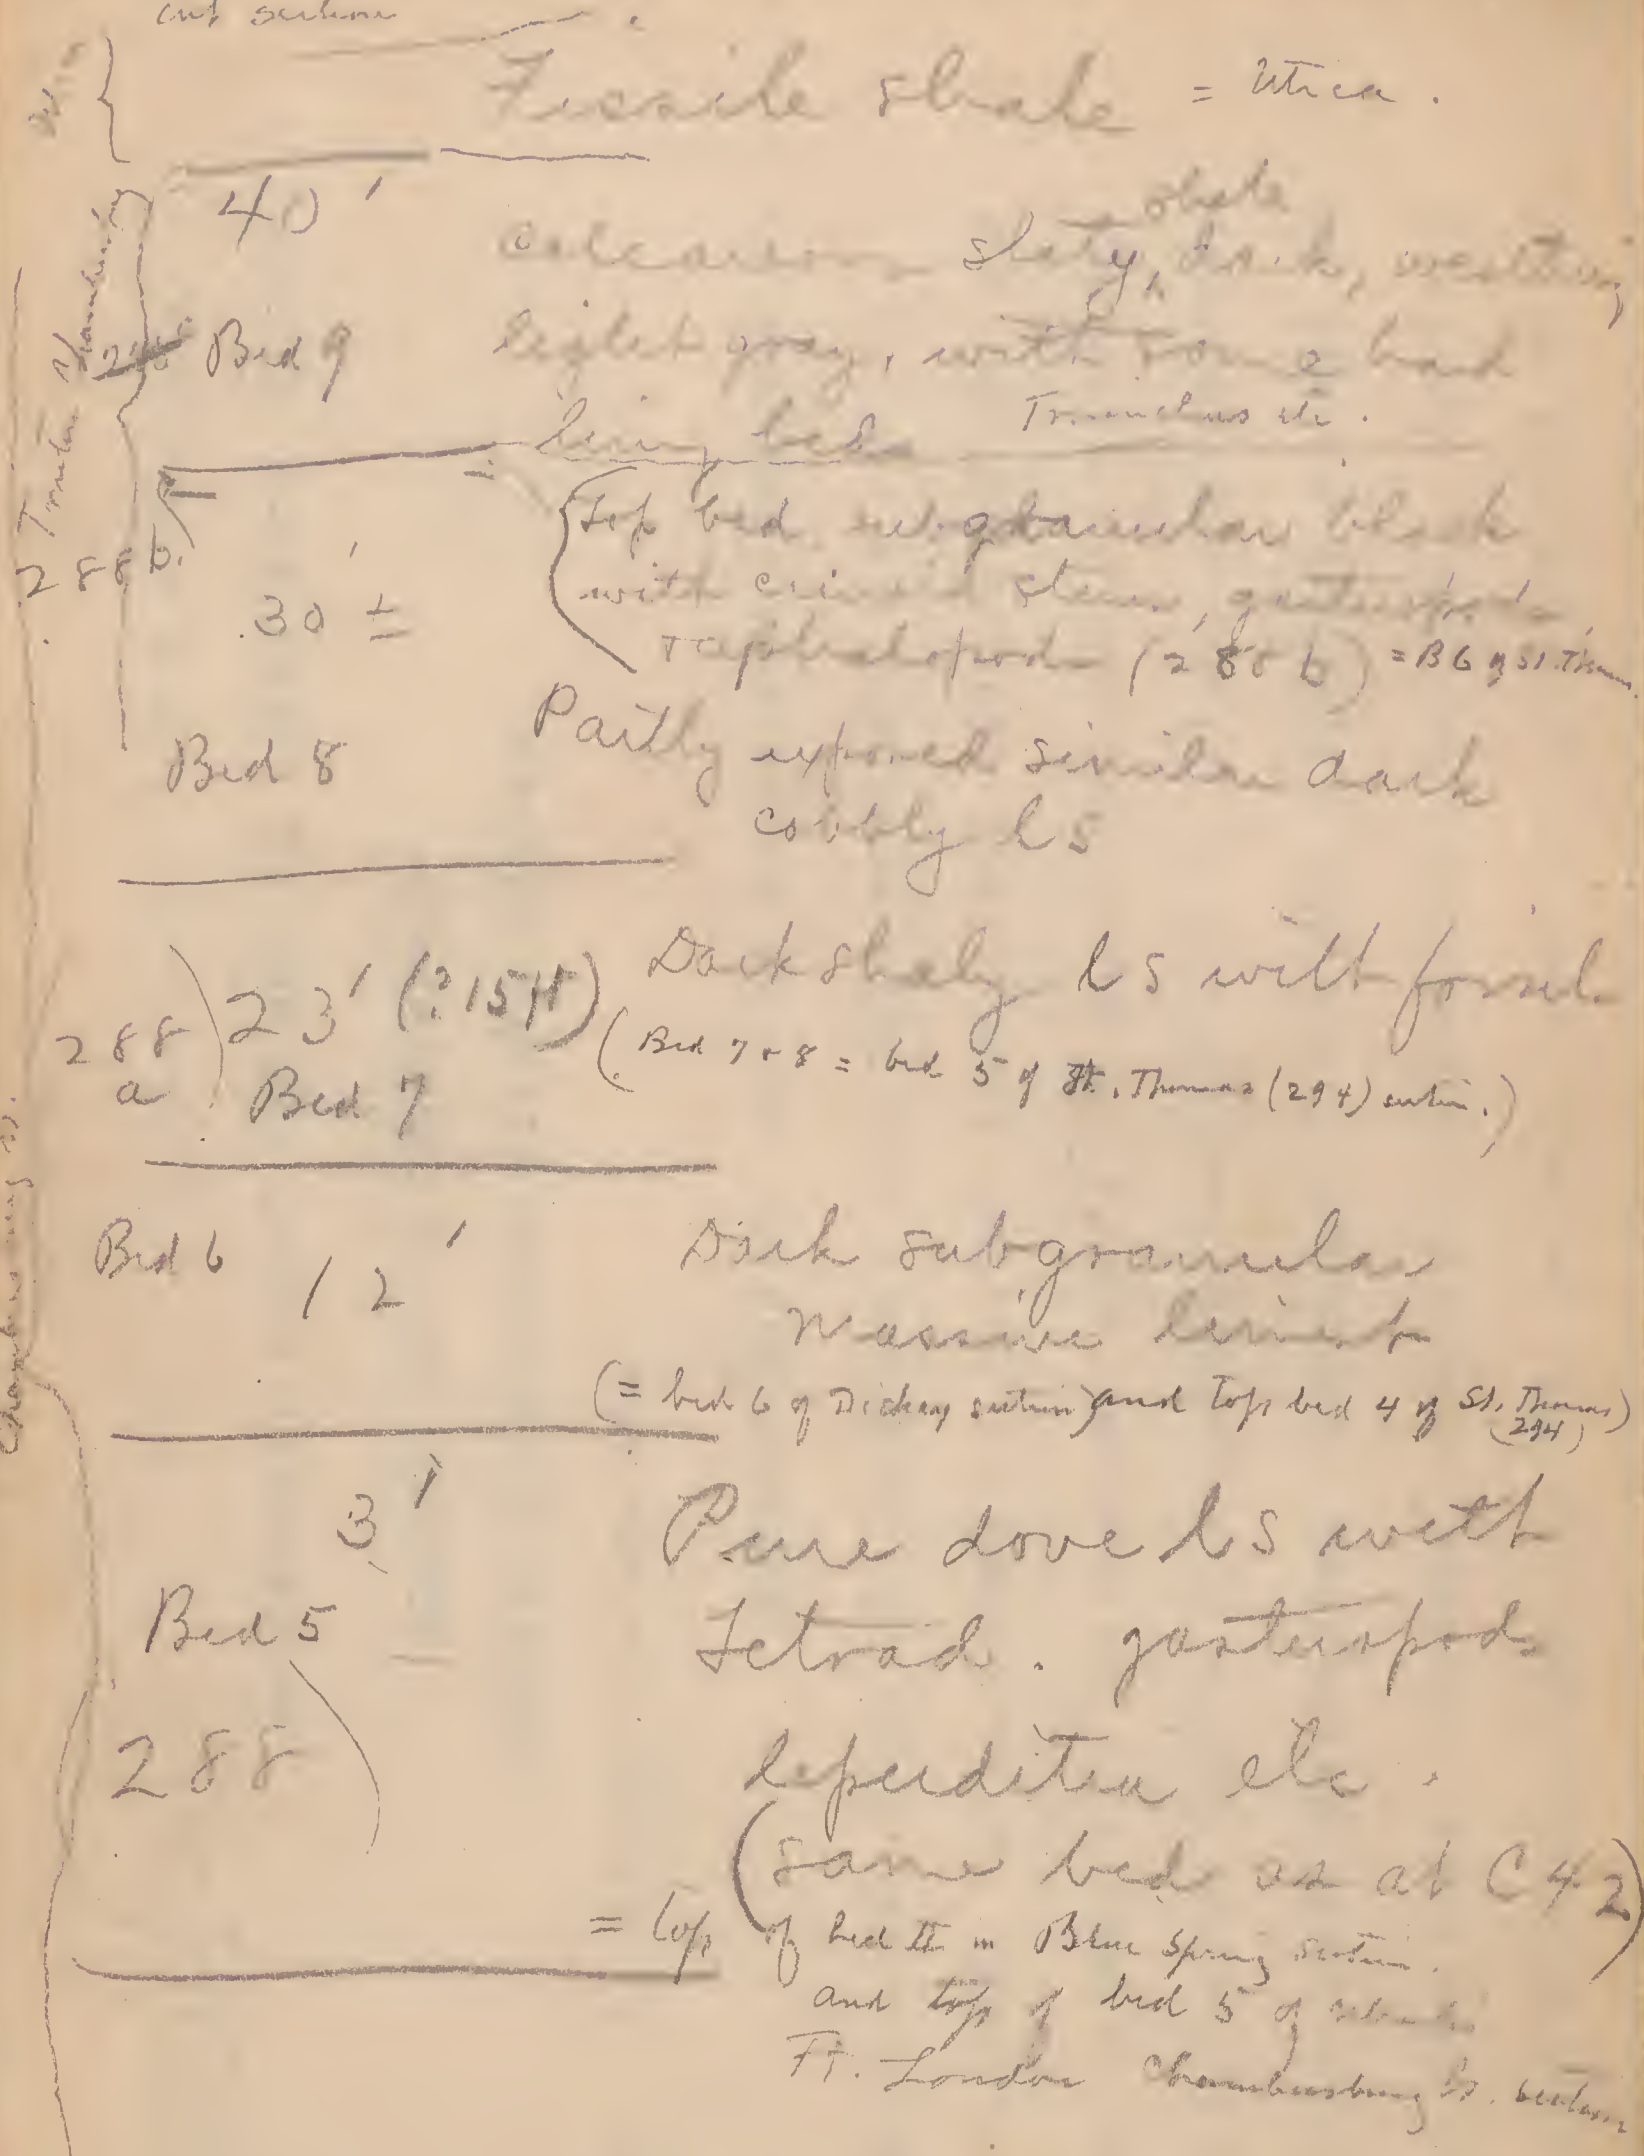 cut section
Fissile shale = Utica.
40'
shale
Calcareous slaty, dark, weathering
Bed 9
light gray, with some hard
limy beds
Trinucleus etc.
288b.
30' ±
Top bed subgranular black
with crinoid stems, gasteropods
cephalopods (288b) = B6 of St. Thomas
Bed 8
Partly exposed similar dark
cobbly ls
288a) 23' (?15ft) Dark shaly ls with fossils
Bed 7
(Bed 7 + 8 = bed 5 of St. Thomas (294) section.)
Bed 6 12' Dark subgranular
massive limest
(= bed 6 of Dickey section) and top bed 4 of St. Thomas (294)
3' Pure dove ls with
Bed 5 Tetrad. gasteropods
288) leperditia etc.
(same bed as at C42)
= top of bed II in Blue Spring section.
and top of bed 5 of
Ft. Loudon Chambersburg ls. section
Chambersburg ls.